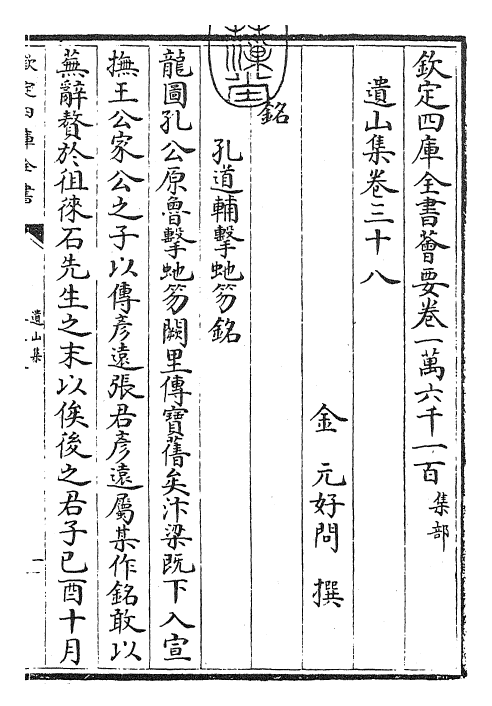 欽定四庫全書薈要卷一萬六千一百 集部
遺山集卷三十八
金 元好問 撰
銘
孔道輔擊虵笏銘
龍圖孔公原魯擊虵笏闕里傳寶舊矣汴梁既下入宣
撫王公家公之子以傳彥遠張君彥遠屬某作銘敢以
蕪辭贅於徂徠石先生之末以俟後之君子己酉十月
欽定四庫全書
遺山集
一